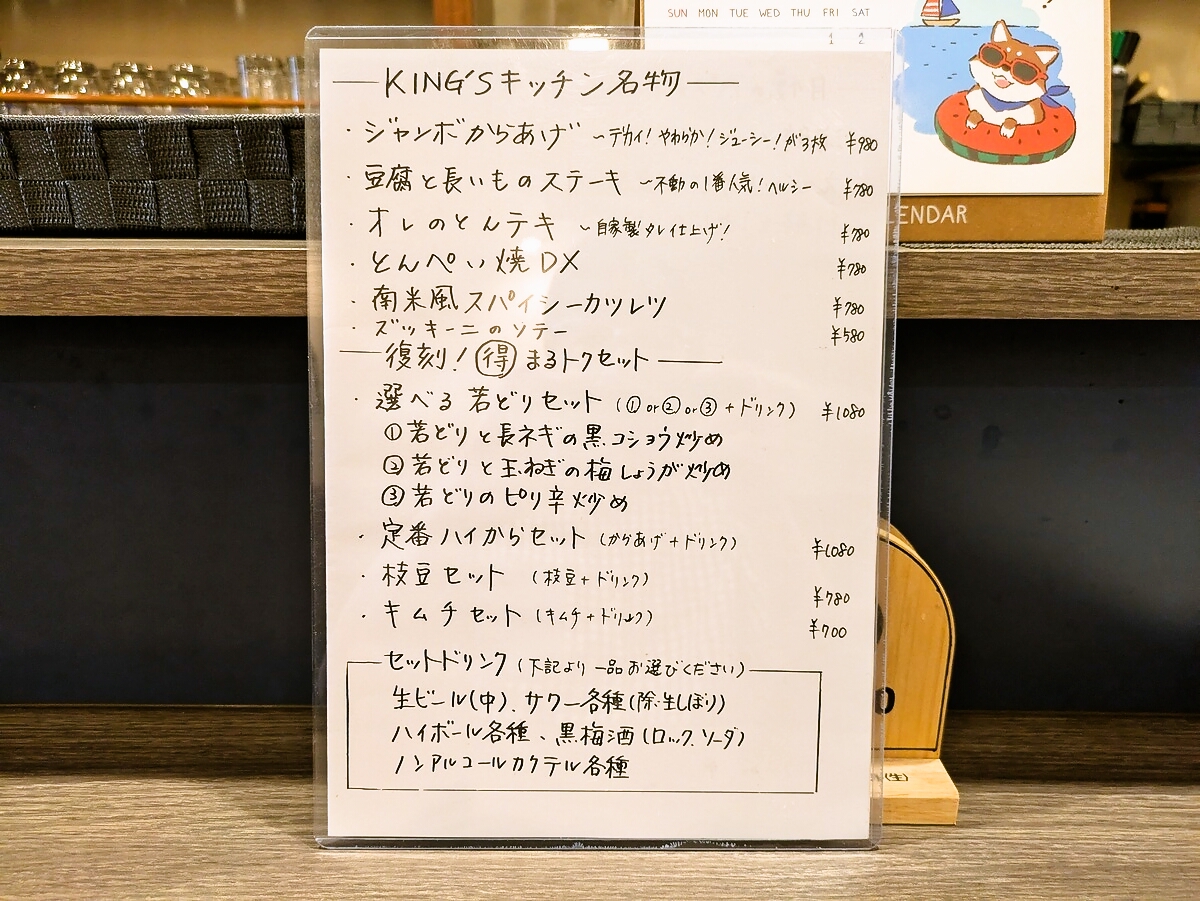 SUN MON TUE WED THU FRI SAT
1 2
KING'Sキッチン名物
・ジャンボからあげ 〜デカイ!やわらか!ジューシー!が3枚 ¥980
・豆腐と長いものステーキ 〜不動の1番人気!ヘルシー ¥780
・オレのとんテキ 〜自家製タレ仕上げ! ¥780
・とんぺい焼DX ¥780
・南米風スパイシーカツレツ ¥780
・ズッキーニのソテー ¥580
復刻!得まるトクセット
・選べる若どりセット(①or②or③+ドリンク) ¥1080
①若どりと長ネギの黒コショウ炒め
②若どりと玉ねぎの梅しょうが炒め
③若どりのピリ辛炒め
・定番ハイからセット(からあげ+ドリンク) ¥1080
・枝豆セット(枝豆+ドリンク) ¥780
・キムチセット(キムチ+ドリンク) ¥700
セットドリンク(下記より一品お選びください)
生ビール(中)、サワー各種(除・生しぼり)
ハイボール各種、黒梅酒(ロック、ソーダ)
ノンアルコールカクテル各種
ENDAR
(生)